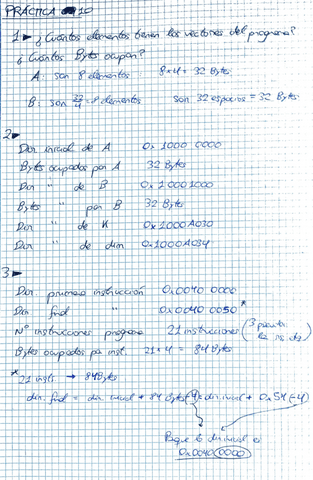 PRÁCTICA 10
1 ► ¿Cuántos elementos tienen los vectores del programa?
¿Cuántos Bytes ocupan?
A: son 8 elementos 8*4 = 32 Bytes
B: son 32/4 = 8 elementos son 32 espacios = 32 Bytes
2 ►
Dir inicial de A 0x 1000 0000
Bytes ocupados por A 32 Bytes
Dir " de B 0x 1000 1000
Bytes " por B 32 Bytes
Dir " de K 0x1000A030
Dir " de dim 0x1000A034
3 ►
Dir. primera instrucción 0x0040 0000
Dir. final " 0x0040 0050*
Nº instrucciones programa 21 instrucciones (3
Bytes ocupados por inst. 21*4 = 84 Bytes
* 21 insts → 84 Bytes
dir. final = dir. inicial + 84 Bytes(-4) = dir. inicial + 0x54(-4)
Porque la dir inicial es
0x0040 0000